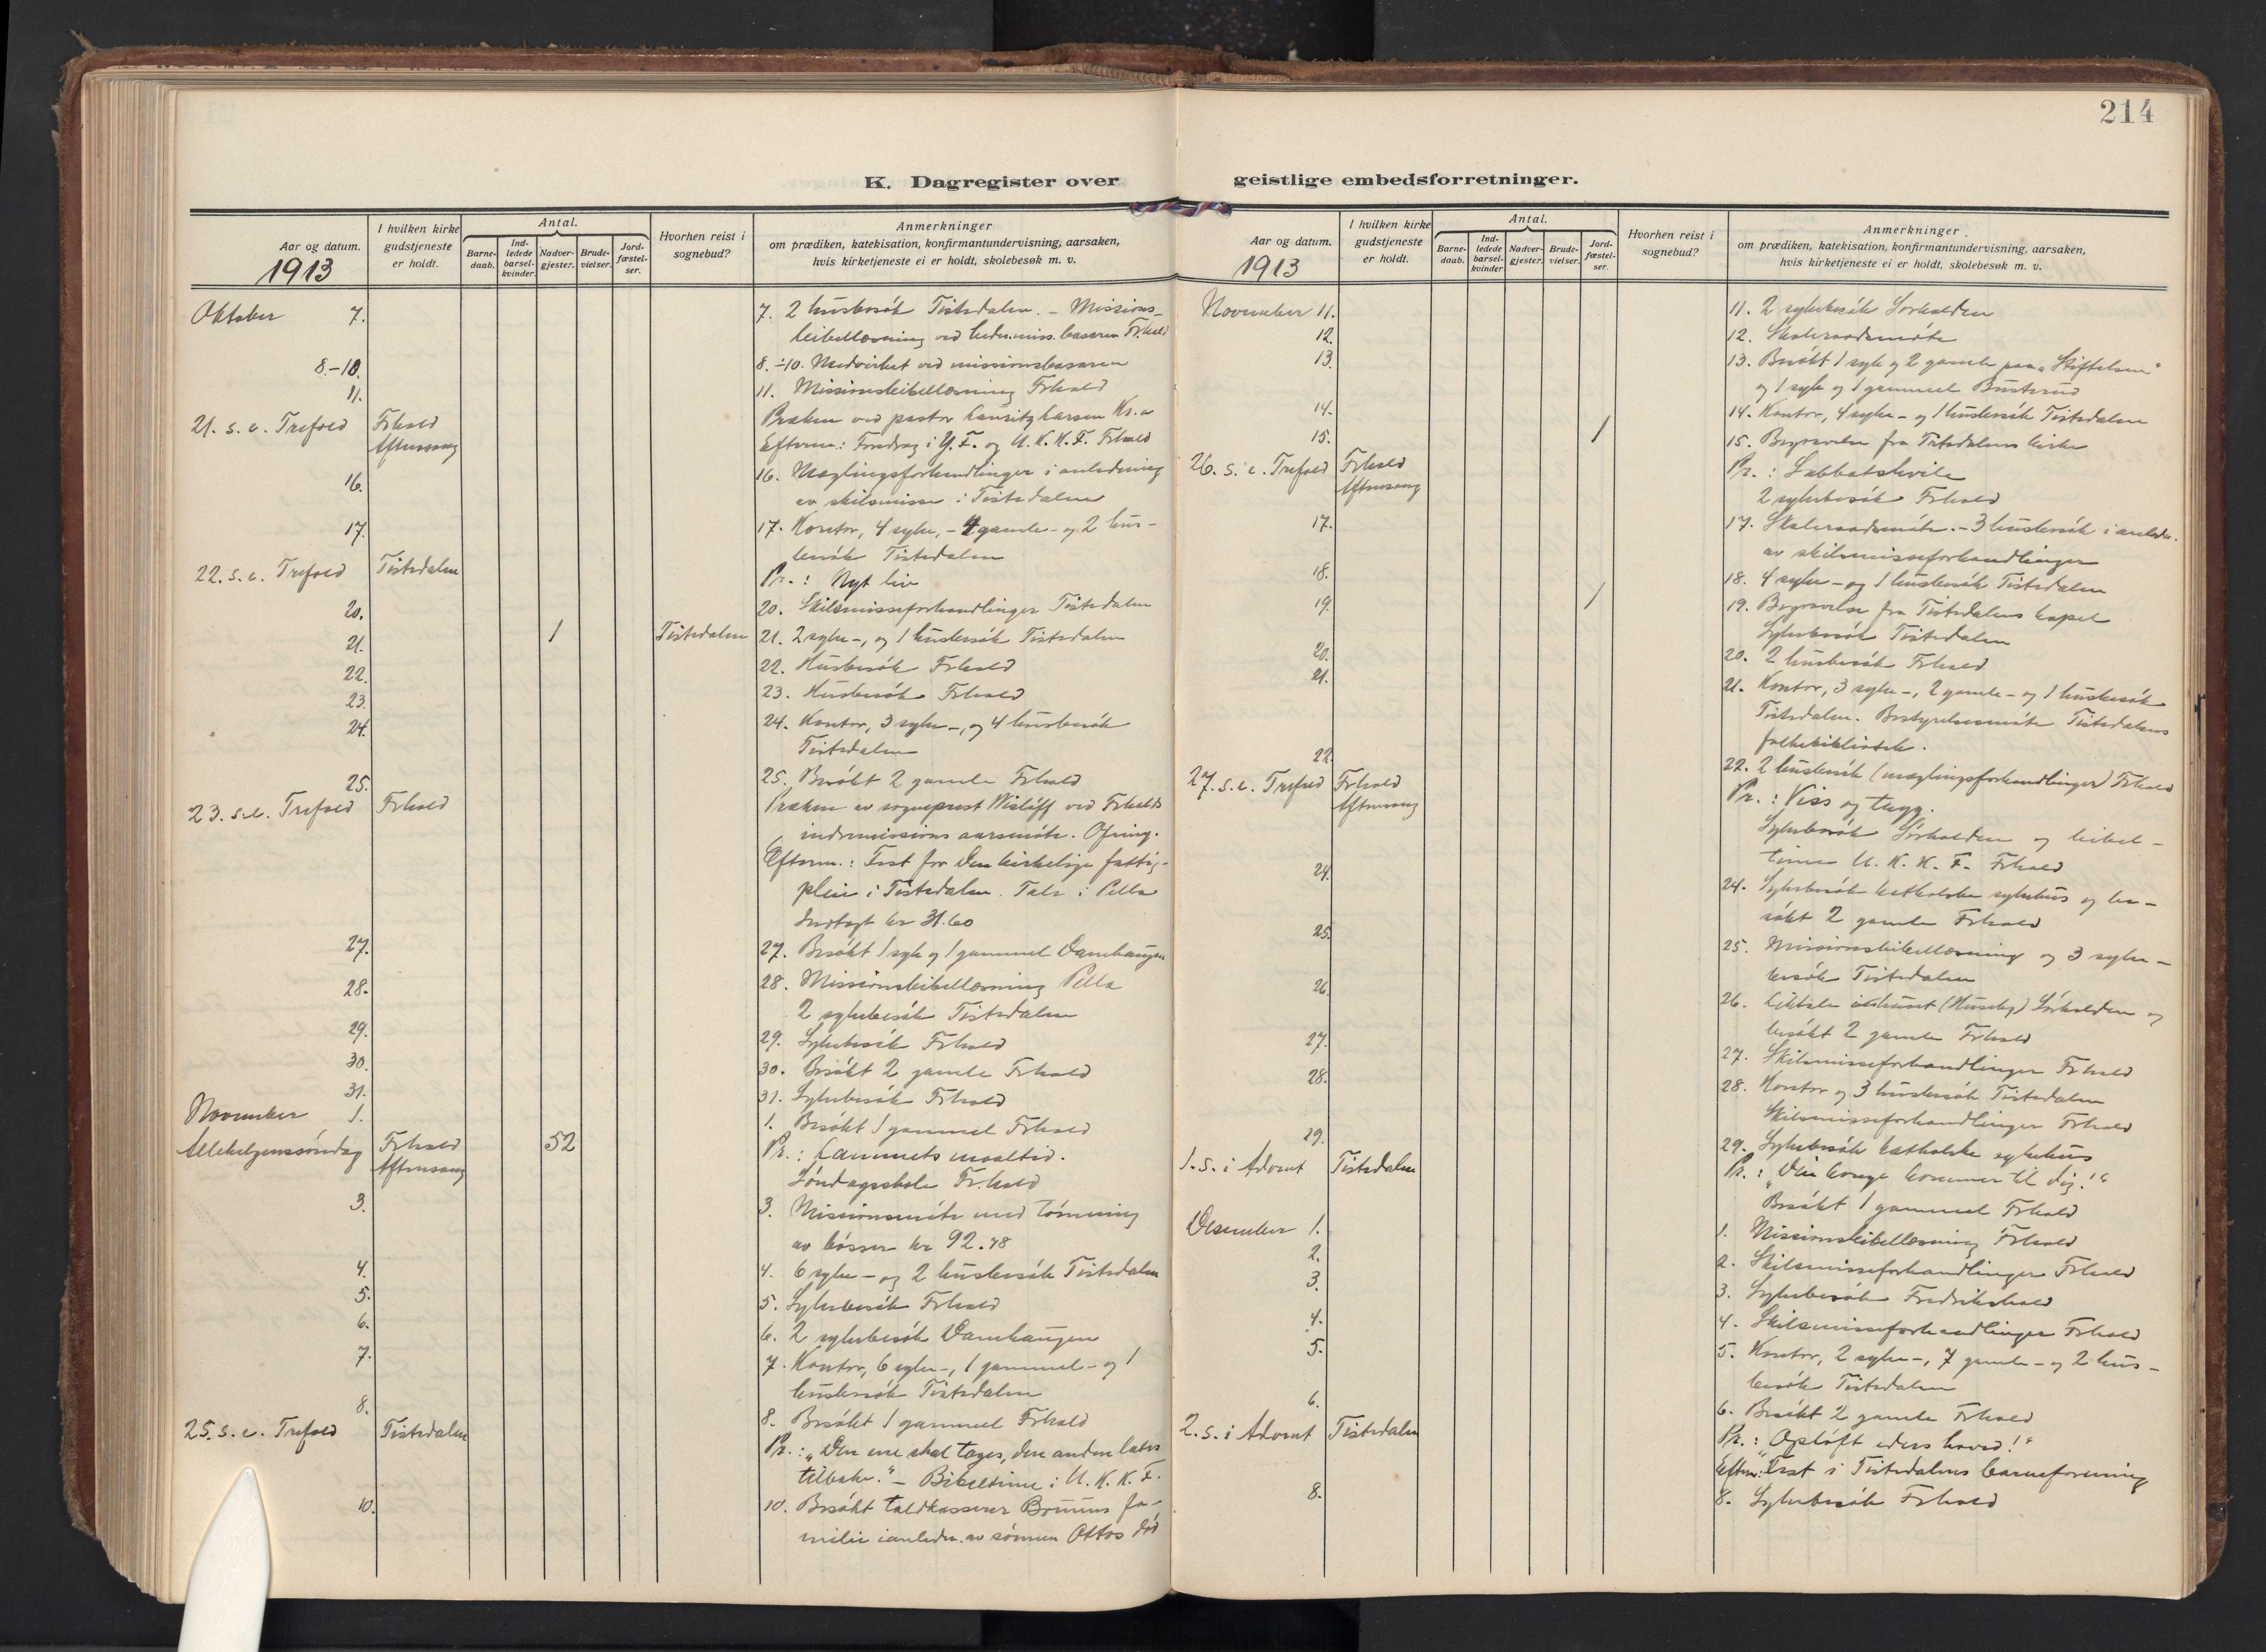 214
K. Dagregister over geistlige embedsforretninger.
Aar og datum.
1913
I hvilken kirke
gudstjeneste
er holdt.
Antal.
Barne-
daab.
Ind-
ledede
barsel-
kvinder
Nadver-
gjester.
Brude-
vielser.
Jord-
fæstel-
ser.
Hvorhen reist i
sognebud?
Anmerkninger
om prædiken, katekisation, konfirmantundervisning, aarsaken,
hvis kirketjeneste ei er holdt, skolebesøk m. v.
Oktober 7. 7. 2 husbesök Tistedalen. – Missions-
bibellæsning ved hedn.miss. basaren Frhald
8.-10. 8.-10. Medvirket ved missionsbasaren
11. 11. Missionsbibellæsning Frhald
21. s. e. Trefold Frhald Præken ved pastor Lauritz Larsen Kr.a
Aftensang Efterm.: Foredrag i Y.F. og U.K.K.F. Frhald
16. 16. Mæglingsforhandlinger i anledning
av skilsmisse i Tistedalen
17. 17. Kontor, 4 syke, - 4 gamle- og 2 hus-
besök Tistedalen
22. s. e. Trefold Tistedalen Pr.: Nyt liv
20. 20. Skilsmisseforhandlinger Tistedalen
21. 1 Tistedalen 21. 2 syke-, og 1 husbesök Tistedalen
22. 22. Husbesök Frhald
23. 23. Husbesök Frhald
24. 24. Kontor, 3 syke-, og 4 husbesök
Tistedalen
25. 25. Besökt 2 gamle Frhald
23. s.e. Trefold Frhald Præken av sogneprest Wisløff ved Frhalds
indremissions aarsmöte. Ofring.
Efterm.: Fest for den kirkelige fattig-
pleie i Tistedalen. Tale i Pella
Indtægt kr 31.60
27. 27. Besökt 1 syk og 1 gammel Damhaugen
28. 28. Missionsbibellæsning Pella
2 sykebesök Tistedalen
29. 29. Sykebesök Frhald
30. 30. Besökt 2 gamle Frhald
31. 31. Sykebesök Frhald
November 1. 1. Besökt 1 gammel Frhald
Allehelgenssöndag Frhald 52 Pr.: Lammets maaltid.
Aftensang Söndagsskole Fr.hald
3. 3. Missionsmöte med tömning
av bösser kr 92.78
4. 4. 6 syke- og 2 husbesök Tistedalen
5. 5. Sykebesök Frhald
6. 6. 2 sykebesök Damhaugen
7. 7. Kontor, 6 syke-, 1 gammel- og 1
husbesök Tistedalen
8. 8. Besökt 1 gammel Frhald
25. s. e. Trefold Tistedalen Pr.: „Den ene skal tages, den anden lates
tilbake." – Bibeltime i U.K.K.F.
10. 10. Besökt toldkasserer Bruuns fa-
milie i anledn. av sönnen Ottos död
Aar og datum.
1913
I hvilken kirke
gudstjeneste
er holdt.
Antal.
Barne-
daab.
Ind-
ledede
barsel-
kvinder
Nadver-
gjester.
Brude-
vielser.
Jord-
fæstel-
ser.
Hvorhen reist i
sognebud?
Anmerkninger
om prædiken, katekisation, konfirmantundervisning, aarsaken,
hvis kirketjeneste ei er holdt, skolebesøk m. v.
November 11. 11. 2 sykebesök Sörhalden
12. 12. Skoleraadsmöte
13. 13. Besökt 1 syk og 2 gamle paa „Stiftelsen"
og 1 syk og 1 gammel Busterud
14. 14. Kontor, 4 syke- og 1 husbesök Tistedalen
15. 1 15. Begravelse fra Tistedalens kirke
26. s. e. Trefold Frhald Pr.: Sabbatshvile
Aftensang 2 sykebesök Frhald
17. 17. Skoleraadsmöte. – 3 husbesök i anledn.
av skilsmisseforhandlinger
18. 18. 4 syke- og 1 husbesök Tistedalen
19. 1 19. Begravelse fra Tistedalens kapel
Sykebesök Tistedalen
20. 20. 2 husbesök Frhald
21. 21. Kontor, 3 syke-, 2 gamle- og 1 husbesök
Tistedalen. Bestyrelsesmöte Tistedalens
folkebibliotek.
22. 22. 2 husbesök (mæglingsforhandlinger) Frhald
27. s. e. Trefold Frhald Pr.: Viss og tryg.
Aftensang Sykebesök Sörhalden og bibel-
time U.K.K.F. Frhald
24. 24. Sykebesök katholske sykehus og be-
sökt 2 gamle Frhald
25. 25. Missionsbibellæsning og 3 syke-
besök Tistedalen
26. 26. Liktale i huset (Huseby) Sörhalden og
besökt 2 gamle Frhald
27. 27. Skilsmisseforhandlinger Frhald
28. 28. Kontor og 3 husbesök Tistedalen
Skilsmisseforhandlinger Frhald
29. 29. Sykebesök katholske sykehus
1. s. i Advent Tistedalen Pr.: „Din konge kommer til dig!"
Besökt 1 gammel Frhald
Desember 1. 1. Missionsbibellæsning Frhald
2. 2. Skilsmisseforhandlinger Frhald
3. 3. Sykebesök Fredrikshald
4. 4. Skilsmisseforhandlinger Frhald
5. 5. Kontor, 2 syke-, 7 gamle- og 2 hus-
besök Tistedalen
6. 6. Besökt 2 gamle Frhald
2. s. i Advent Tistedalen Pr.: „Oplöft eders hoved!"
Efterm: Fest i Tistedalens barneforening
8. 8. Sykebesök Frhald